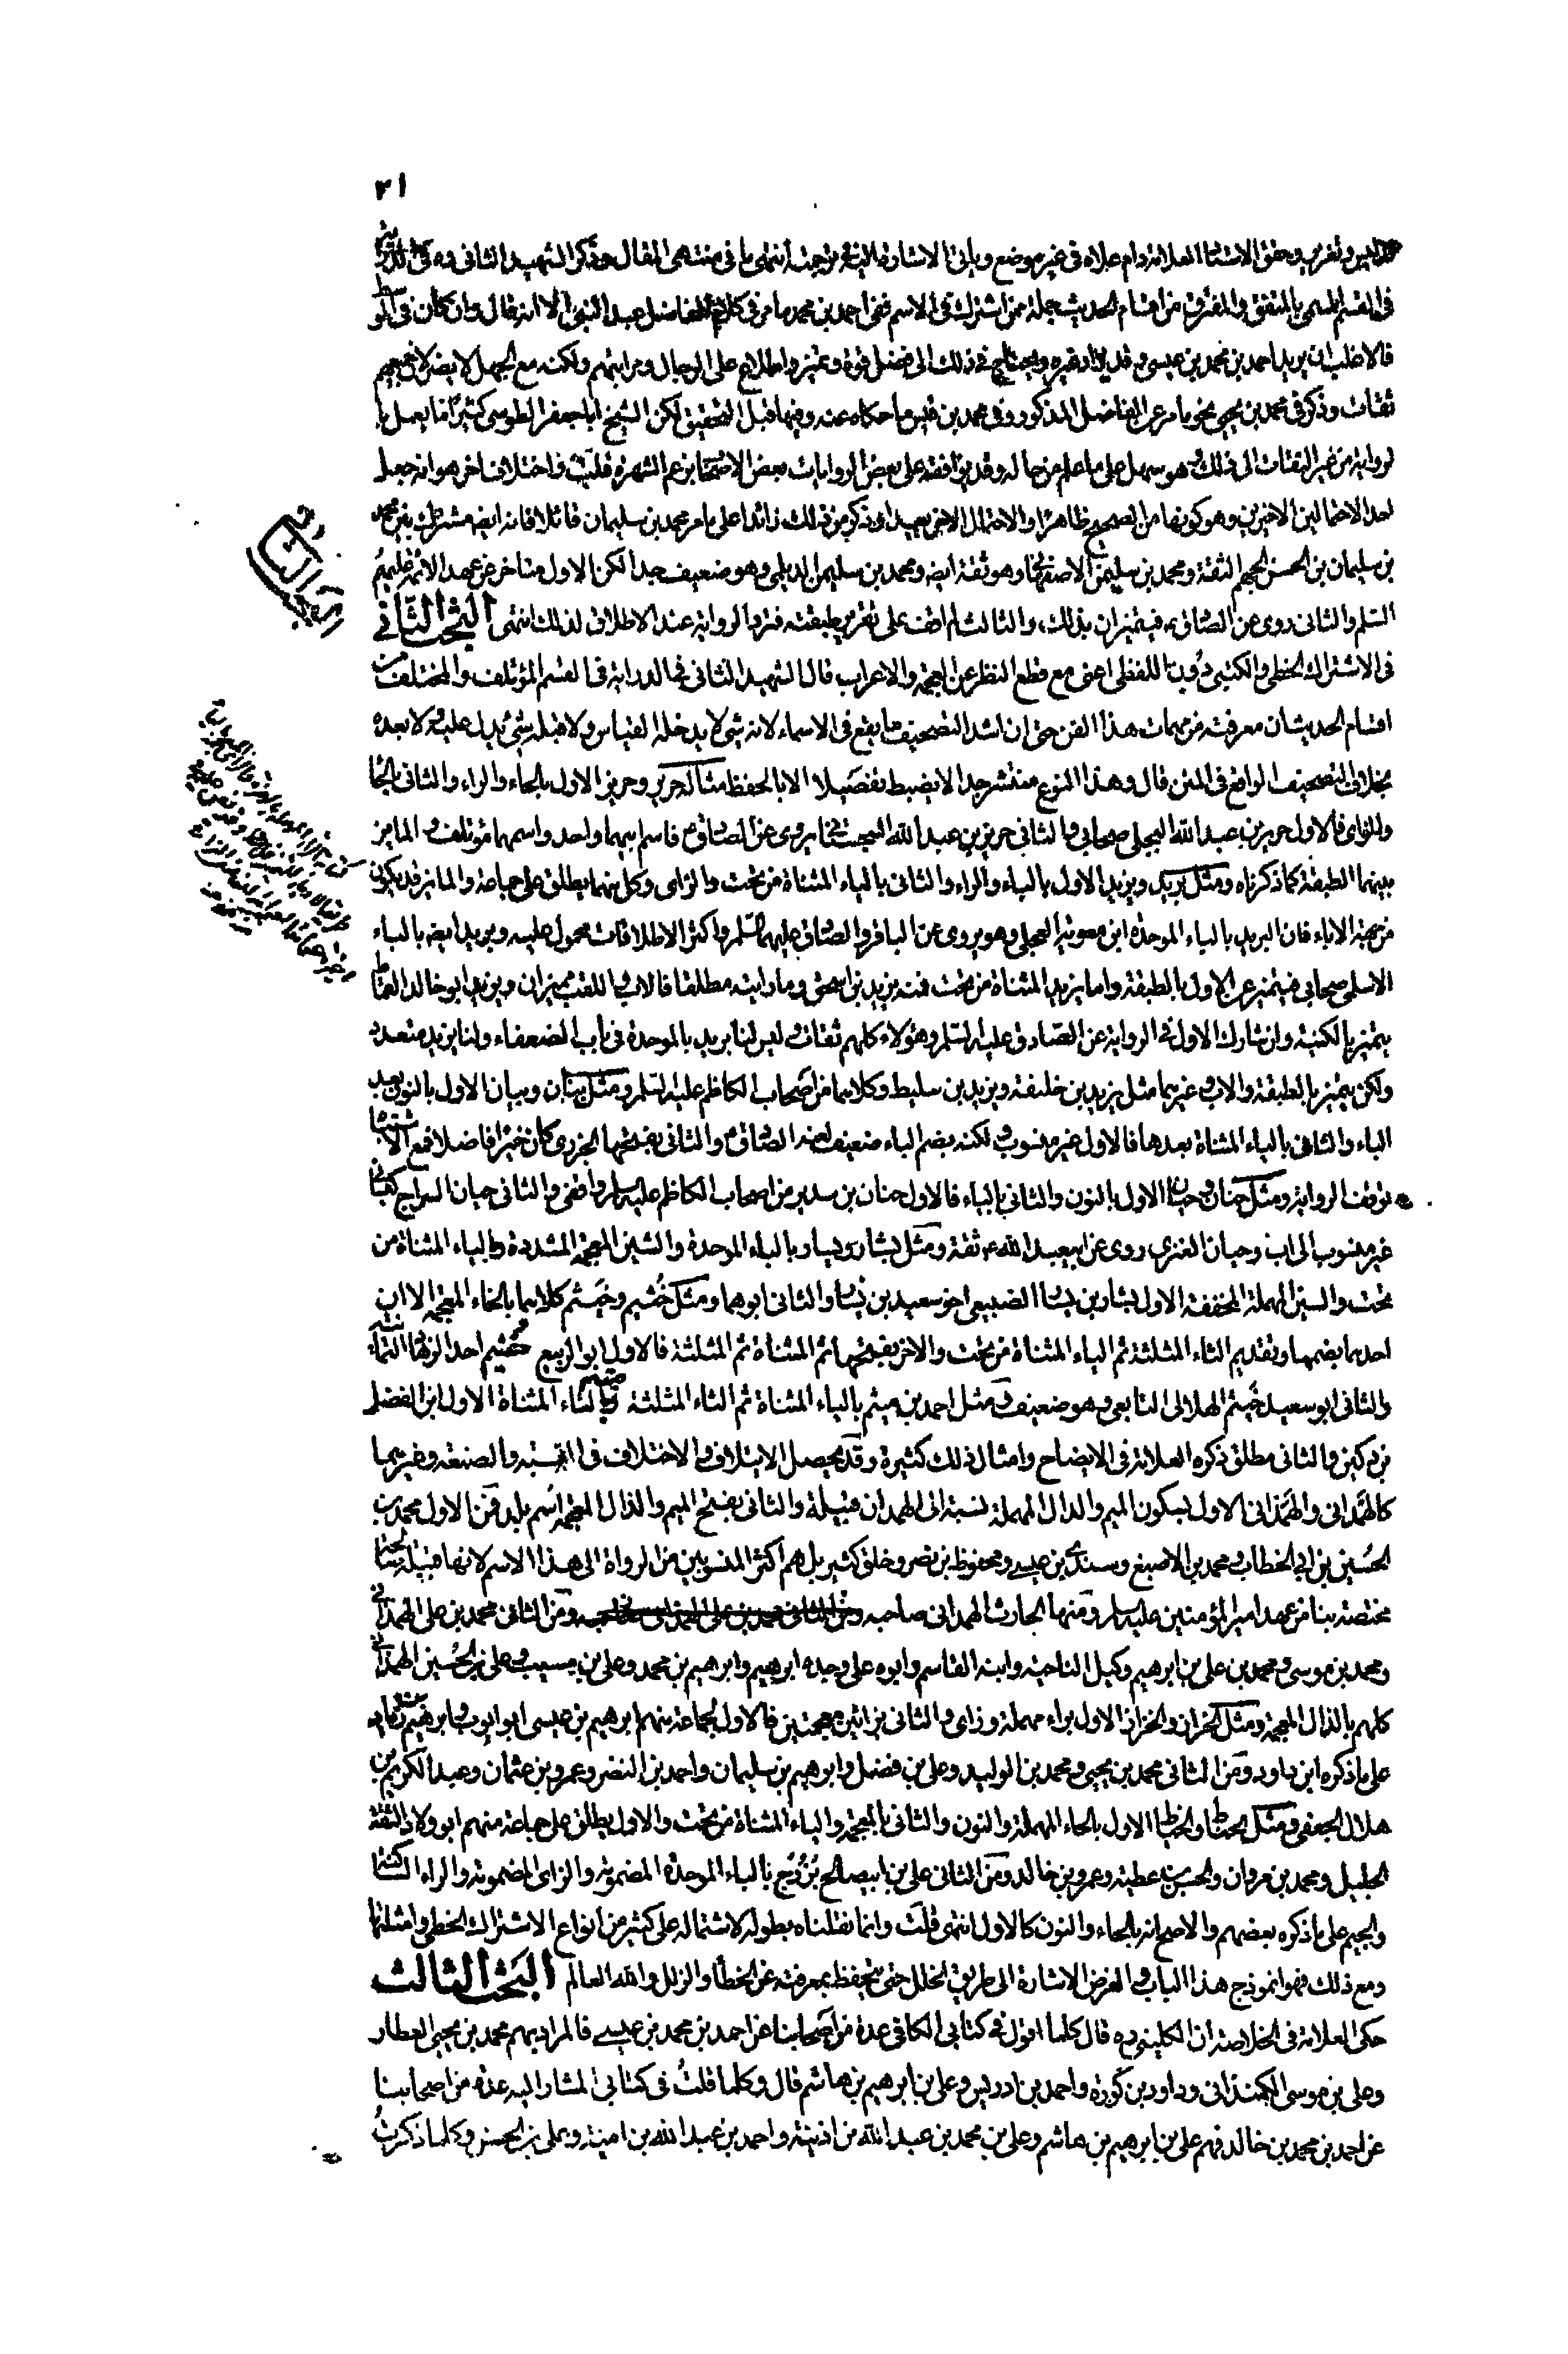 ٣١
في القسم المسمى بالمتفق والمفترق من اقسام الحديث جملة ممن اشترك في الاسم ففي احمد بن محمد ما مر في كلام الفاضل عبد النبي الا انه قال وان كان في
فالاغلب ان يريد احمد بن محمد بن عيسى وقد يراد غيره ويحتاج في ذلك الى فضل قوة وتميز واطلاع على الرجال ومراتبهم ولكنه مع الجهل لا يضر لان جميعهم
ثقات وذكر في محمد بن يحيى نحو ما مر عن الفاضل المذكور وفي محمد بن قيس ما حكاه عنه وفيها قبل التحقيق لكن الشيخ ابا جعفر الطوسي كثيرا ما يعمل با
لرواية من غير الثقات الى ذلك وهو سهل على ما علم من حاله وقد يوافقه على بعض الروايات بعض الاصحاب بزعم الشهرة قلت واختلاف اخر هو انه جعل
احد الاحتمالين الاخيرين وهو كونها من الصحيح ظاهرا والاحتمال الاخر بعيدا وذكر من ذلك زائدا على ما مر محمد بن سليمان قائلا فانه ايضه مشترك بين محمد
بن سليمان بن الحسن الجهم الثقة ومحمد بن سليمن الاصفهاني وهو ثقة ايضه ومحمد بن سليمن الديلمي وهو ضعيف جدا لكن الاول متاخر عن عهد الائمة عليهم
السلم والثاني روى عن الصادق ع فيتميزان بذلك، والثالث لم اقف على تقرير طبقته فترد الرواية عند الاطلاق لذلك انتهى البحث الثاني
في الاشتراك الخطي والكتبي دون اللفظي اعني مع قطع النظر عن العجمة والاعراب قال الشهيد الثاني في الدراية في القسم المؤتلف والمختلف من
اقسام الحديث ان معرفته من مهمات هذا الفن حتى ان اشد التصحيف ما يقع في الاسماء لانه شي لا يدخله القياس ولا قبله شئ يدل عليه ولا بعده
بخلاف التصحيف الواقع في المتن قال وهذا النوع منتشر جدا لا يضبط تفصيلا الا بالحفظ مثاله جرير وحريز الاول بالجاء والراء والثاني بالحا
والزاي فالاول جرير بن عبد الله البجلي صحابي والثاني حريز بن عبد الله السجستاني يروى عن الصادق ع فاسم ابيهما واحد واسمهما مؤتلف والمايز
بينهما الطبقة كما ذكرناه ومثل بريد ويزيد الاول بالباء والراء والثاني بالياء المثناة من تحت والزاي وكل منهما يطلق على جماعة والمايز قد يكون
من جهة الاباء فان البريد بالباء الموحدة ابن معوية العجلي وهو يروى عن الباقر والصادق عليهما السلم واكثر الاطلاقات محمول عليه وبريد ايضه بالباء
الاسلمي صحابي فيتميز عن الاول بالطبقة واما يزيد المثناة من تحت فمنه يزيد بن اسحق وما رايته مطلقا فالاب واللقب مميزان ويزيد ابو خالد القماط
يتميز بالكنية وان شارك الاول في الرواية عن الصادق عليه السلم وهؤلاء كلهم ثقات وليس لنا بريد بالموحدة في باب الضعفاء ولنا يزيد متعدد
ولكن يتميز بالطبقة والاب وغيرهما مثل يزيد بن خليفة ويزيد بن سليط وكلاهما من اصحاب الكاظم عليه السلم ومثل بنان وبيان الاول بالنون بعد
الباء والثاني بالياء المثناة بعدها فالاول غير منسوب ولكنه بضم الباء ضعيف لعنه الصادق ع والثاني بفتحها الجزري كان خيرا فاضلا فمع الاشتباه
توقف الرواية ومثل حنان وحيان الاول بالنون والثاني بالياء فالاول حنان بن سدير من اصحاب الكاظم عليه السلم واقفي والثاني حيان السراج كيساني
غير منسوب الى اب وحيان العنزي روى عن ابي عبد الله ع ثقة ومثل بشار ويسار بالباء الموحدة والشين المعجمة المشددة وبالياء المثناة من
تحت والسين المهملة المخففة الاول بشار بن يسار الضبيعي اخو سعيد بن يسار والثاني ابوهما ومثل خثيم وخيثم كلاهما بالخاء المعجمة الا ان
احدهما بضمها وتقديم الثاء المثلثة ثم الياء المثناة من تحت والاخر بفتحها ثم المثناة ثم المثلثة فالاول ابو الربيع خثيم احد الزهاد الثمانية
والثاني ابو سعيد خيثم الهلالي التابعي وهو ضعيف ومثل احمد بن ميثم بالياء المثناة ثم الثاء المثلثة وبالتاء المثناة الاول ابن الفضل
بن دكين والثاني مطلق ذكره العلامة في الايضاح وامثال ذلك كثيرة وقد يحصل الايتلاف والاختلاف في النسبة والصنعة وغيرهما
كالهمداني والهمذاني الاول بسكون الميم والدال المهملة نسبة الى الهمدان قبيلة والثاني بفتح الميم والذال المعجمة اسم بلد فمن الاول محمد بن
الحسين بن ابي الخطاب ومحمد بن الاصبغ وسندي بن عيسى ومحفوظ بن نصر وخلق كثير بل هم اكثر المنسوبين من الرواة الى هذا الاسم لانها قبيلة
مختصة بنا من عهد امير المؤمنين عليه السلام ومنها الحارث الهمداني صاحبه ومن الثاني محمد بن علي الهمذاني
ومحمد بن موسى ومحمد بن علي بن ابرهيم وكيل الناحية وابنه القاسم وابوه علي وجده ابرهيم وابرهيم بن محمد وعلي بن مسيب وعلي بن الحسين الهمذاني
كلهم بالذال المعجمة ومثل الخراز والخزاز الاول براء مهملة وزاي والثاني بزائين معجمتين فالاول لجماعة منهم ابرهيم بن عيسى ابو ايوب وابرهيم بن زياد
على ما ذكره ابن داود ومن الثاني محمد بن يحيى ومحمد بن الوليد وعلي بن فضل وابرهيم بن سليمان واحمد بن النضر وعمرو بن عثمان وعبد الكريم بن
هلال الجعفي ومثل الحناط والخياط الاول بالحاء المهملة والنون والثاني بالمعجمة والياء المثناة من تحت والاول يطلق على جماعة منهم ابو ولاد الثقة
الجليل ومحمد بن مروان والحسن بن عطية وعمرو بن خالد ومن الثاني علي بن ابي صالح بزرج بالباء الموحدة المضمومة والزاي المضمومة والراء الساكنة
والجيم على ما ذكره بعضهم والاصح انه بالحاء والنون كالاول انتهى قلت وانما نقلناه بطوله لاشتماله على كثير من انواع الاشتراك الخطي وامثلتها
ومع ذلك فهو انموذج هذا الباب والغرض الاشارة الى طريق الخلل حتى يتحفظ بمعرفته عن الخطأ والزلل والله العالم البحث الثالث
حكى العلامة في الخلاصة ان الكليني ره قال كلما اقول في كتابي الكافي عدة من اصحابنا عن احمد بن محمد بن عيسى فالمراد بهم محمد بن يحيى العطار
وعلي بن موسى الكمنذاني وداود بن كورة واحمد بن ادريس وعلي بن ابرهيم بن هاشم قال وكلما قلت في كتابي المشار اليه عدة من اصحابنا
عن احمد بن محمد بن خالد فهم علي بن ابرهيم بن هاشم وعلي بن محمد بن عبد الله بن اذينة واحمد بن عبد الله بن امية وعلي بن الحسن وكلما ذكرت